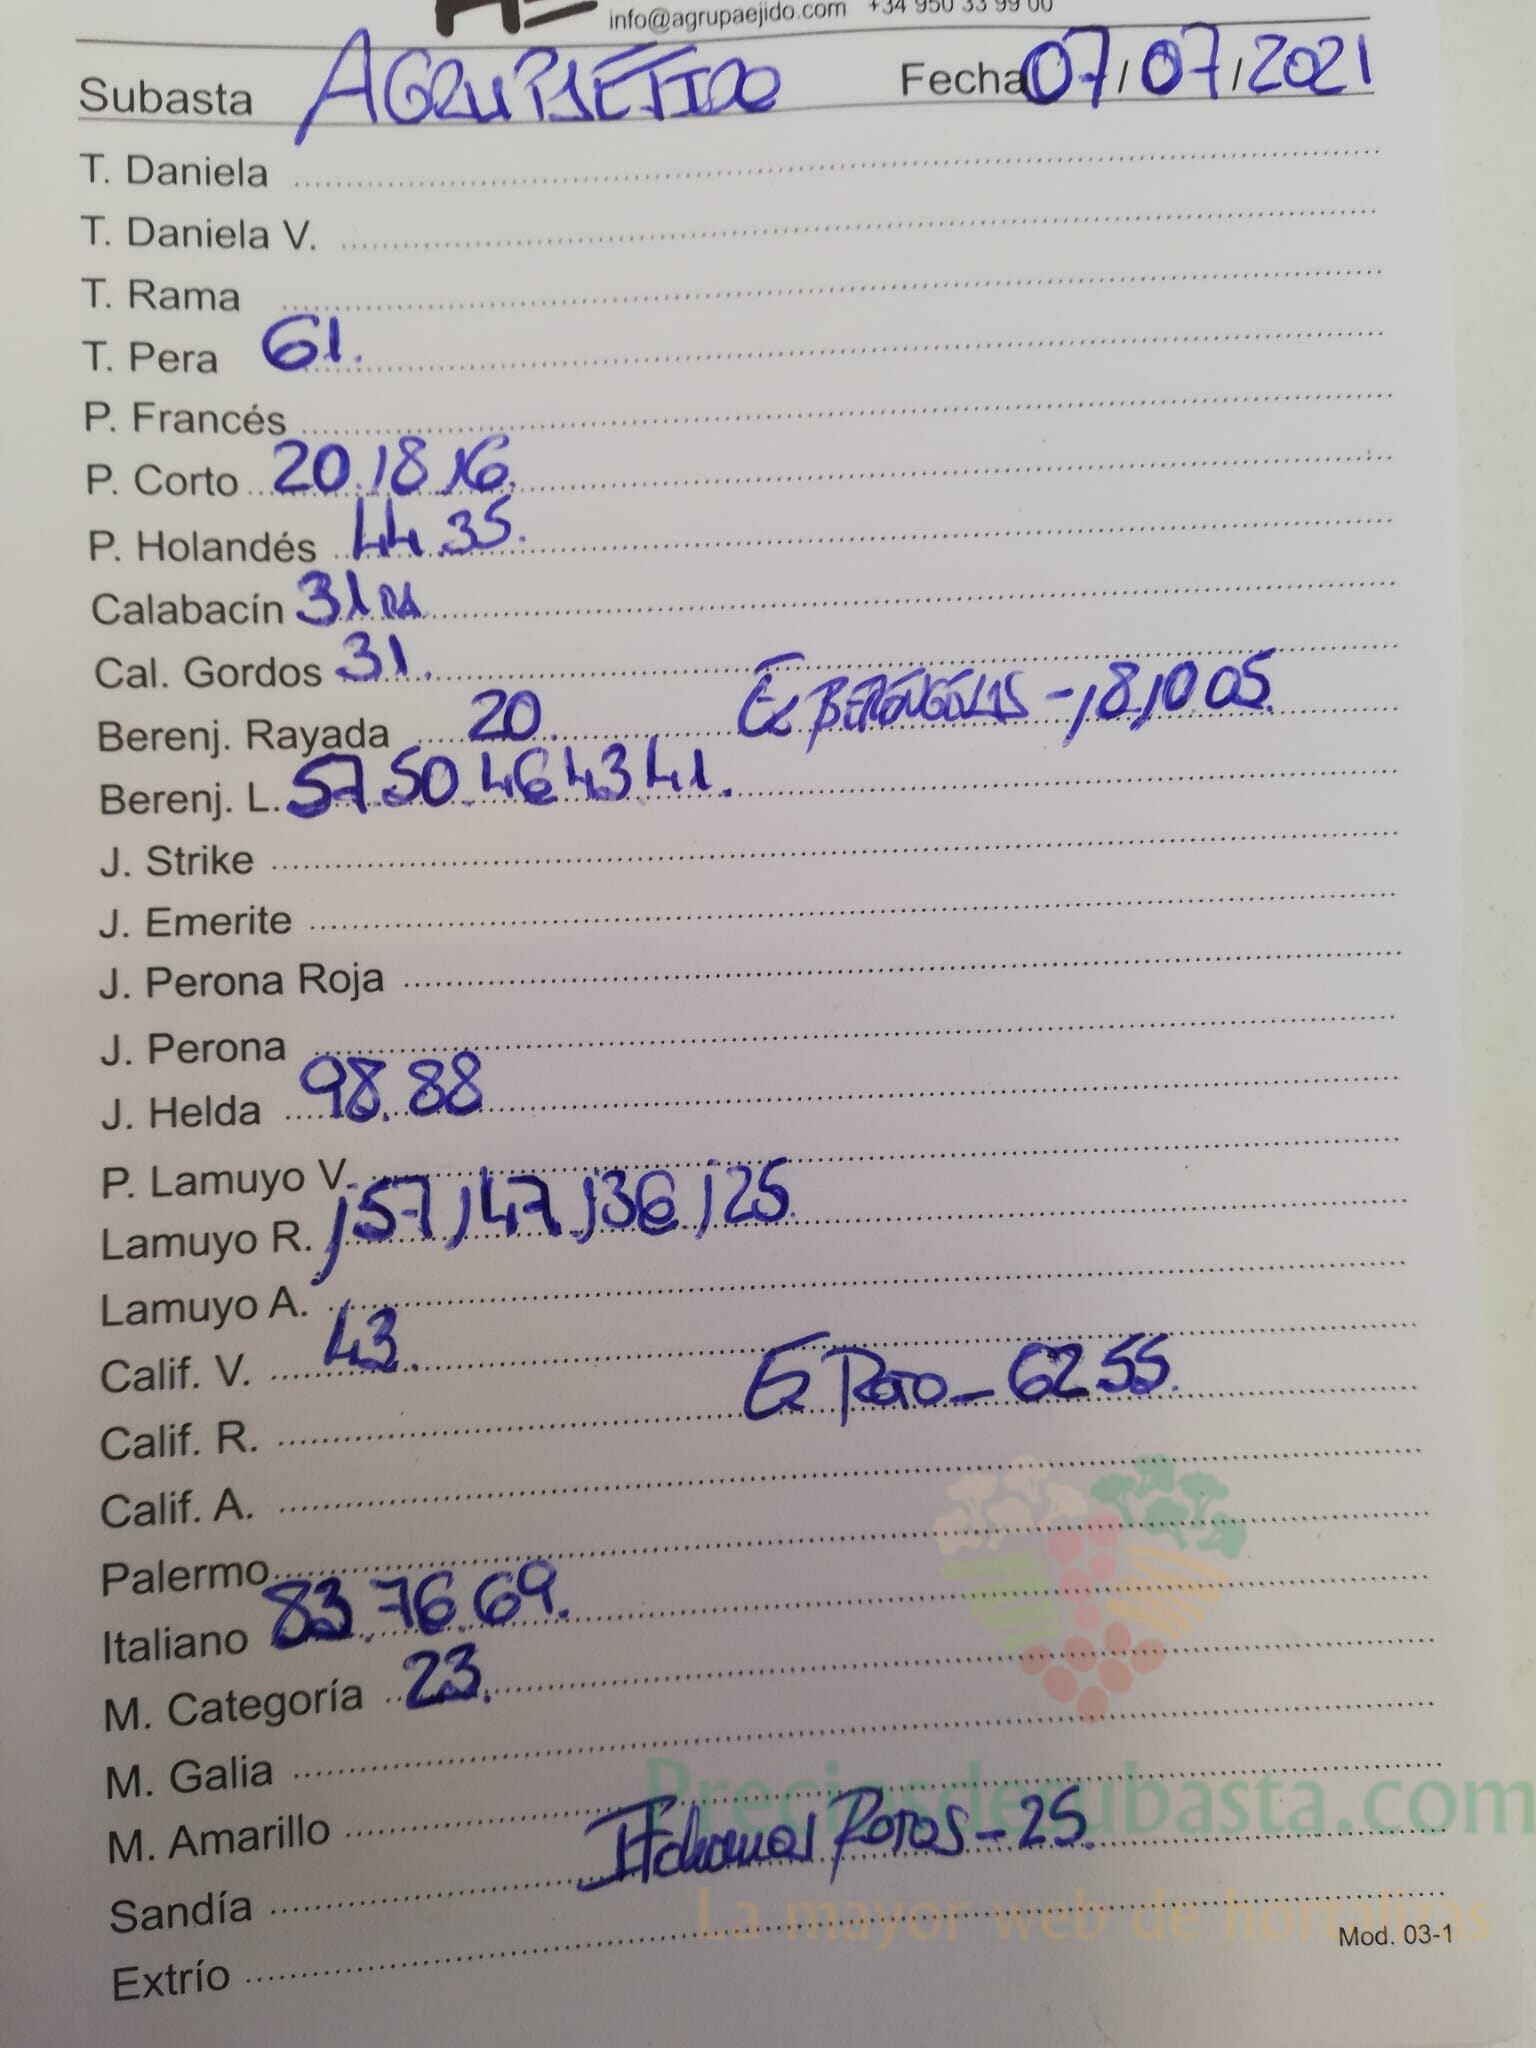 info@agrupaejido.com +34 950 33 99 00
Subasta AGRUPAEJIDO Fecha 07/07/2021
T. Daniela
T. Daniela V.
T. Rama
T. Pera 61.
P. Francés
P. Corto 20,18,16.
P. Holandés 44.35.
Calabacín 31
Cal. Gordos 31.
Berenj. Rayada 20. Ex BERENGENAS -,18,10.05.
Berenj. L. 57.50.46.43.41.
J. Strike
J. Emerite
J. Perona Roja
J. Perona
J. Helda 98.88
P. Lamuyo V.
Lamuyo R. ,57,47,36,25.
Lamuyo A.
Calif. V. 43.
Ex Rojo - 62.55.
Calif. R.
Calif. A.
Palermo
Italiano 83.76.69.
M. Categoría 23.
M. Galia
Preciosdesubasta.com
M. Amarillo
Italianos Rojos - 25.
Sandía
La mayor web de hortalizas
Mod. 03-1
Extrío